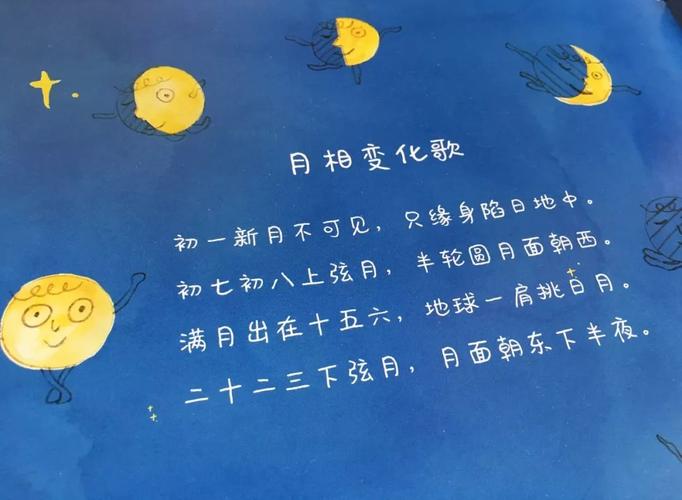 月相变化歌
初一新月不可见，只缘身陷日地中。
初七初八上弦月，半轮圆月面朝西。
满月出在十五六，地球一肩挑日月。
二十二三下弦月，月面朝东下半夜。